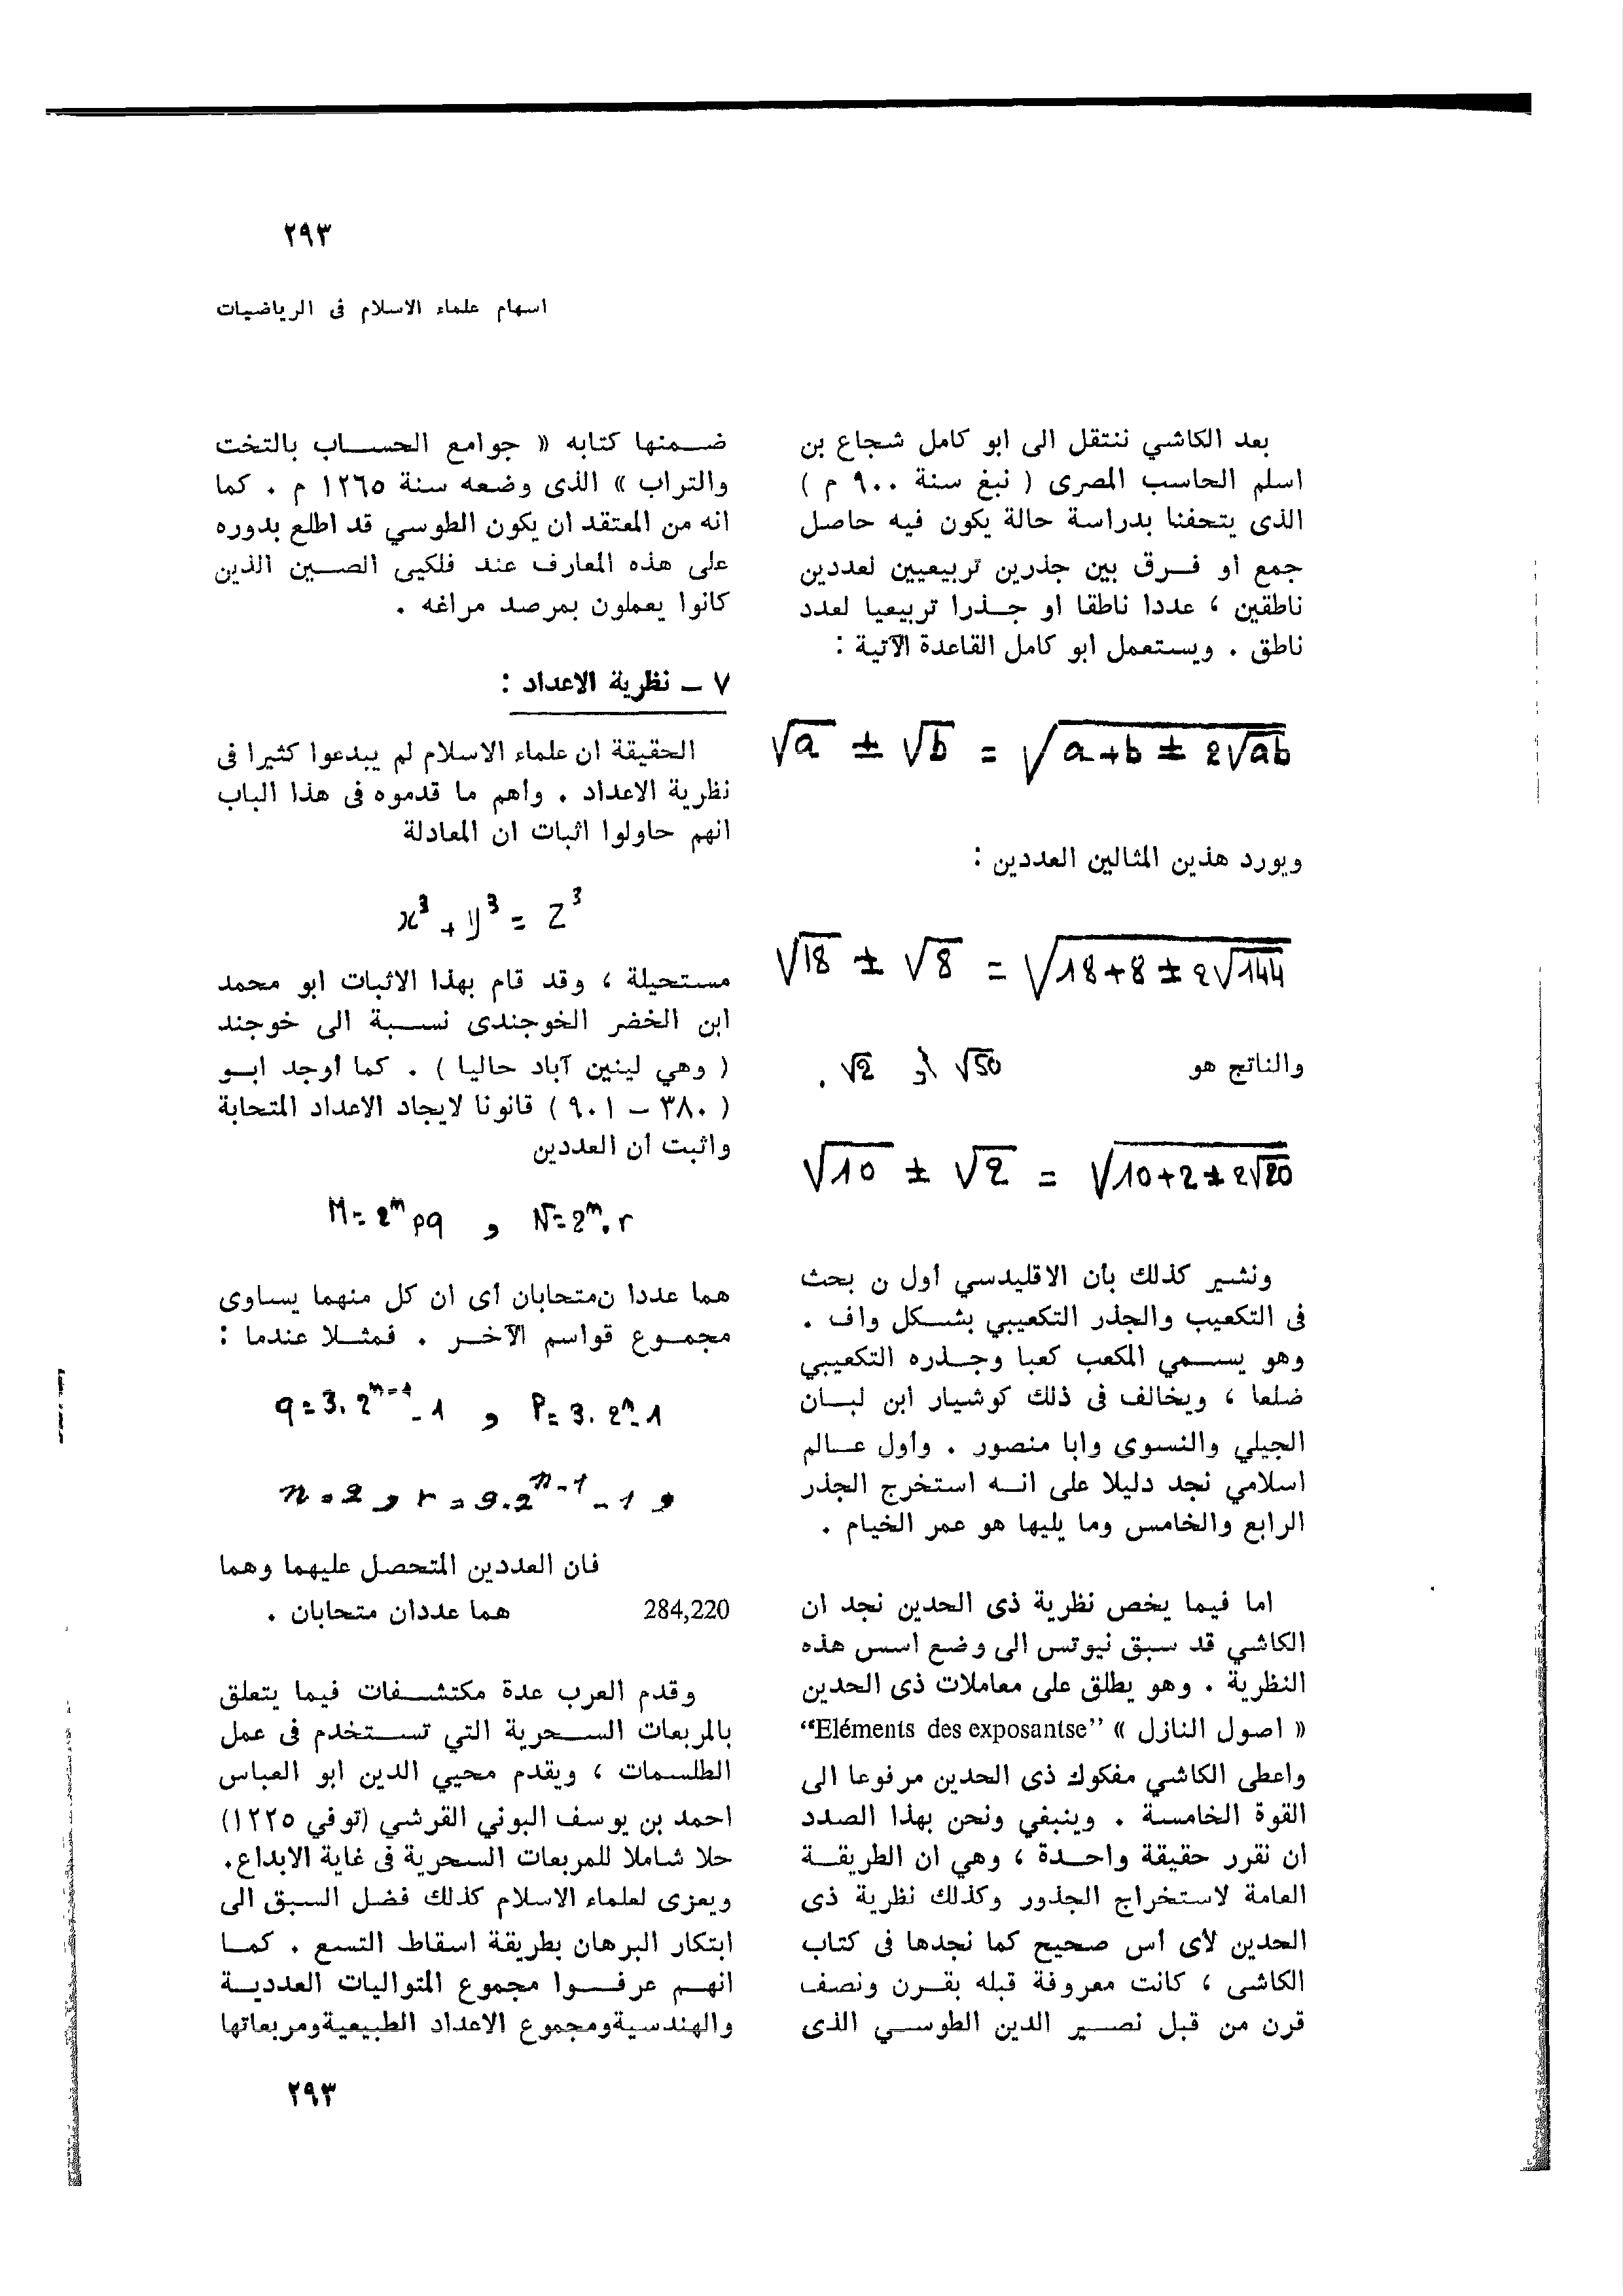 ٢٩٣
اسهام علماء الاسلام فى الرياضيات
بعد الكاشي ننتقل الى ابو كامل شجاع بن
اسلم الحاسب المصرى ( نبغ سنة ٩٠٠ م )
الذى يتحفنا بدراسة حالة يكون فيه حاصل
جمع او فــرق بين جذرين تربيعيين لعددين
ناطقين ، عددا ناطقا او جــذرا تربيعيا لعدد
ناطق . ويستعمل ابو كامل القاعدة الآتية :
√a ± √b = √(a+b ± 2√ab)
ويورد هذين المثالين العددين :
√18 ± √8 = √(18+8 ± 2√144)
والناتج هو √50 او √2 .
√10 ± √2 = √(10+2 ± 2√20)
ونشير كذلك بأن الاقليدسي أول ن بحث
فى التكعيب والجذر التكعيبي بشــكل واف .
وهو يســمي المكعب كعبا وجــذره التكعيبي
ضلعا ، ويخالف فى ذلك كوشيار ابن لبــان
الجيلي والنسوى وابا منصور . وأول عــالم
اسلامي نجد دليلا على انــه استخرج الجذر
الرابع والخامس وما يليها هو عمر الخيام .
اما فيما يخص نظرية ذى الحدين نجد ان
الكاشي قد سبق نيوتس الى وضع اسس هذه
النظرية . وهو يطلق على معاملات ذى الحدين
« اصول النازل » “Eléments des exposantse”
واعطى الكاشي مفكوك ذى الحدين مرفوعا الى
القوة الخامسة . وينبغي ونحن بهذا الصدد
ان نقرر حقيقة واحــدة ، وهي ان الطريقــة
العامة لاستخراج الجذور وكذلك نظرية ذى
الحدين لأى أس صحيح كما نجدها فى كتاب
الكاشى ، كانت معروفة قبله بقــرن ونصف
قرن من قبل نصــير الدين الطوســي الذى
ضــمنها كتابه « جوامع الحســاب بالتخت
والتراب » الذى وضعه سنة ١٢٦٥ م . كما
انه من المعتقد ان يكون الطوسي قد اطلع بدوره
على هذه المعارف عند فلكيى الصــين الذين
كانوا يعملون بمرصد مراغه .
٧ ــ نظرية الاعداد :
الحقيقة ان علماء الاسلام لم يبدعوا كثيرا فى
نظرية الاعداد . واهم ما قدموه فى هذا الباب
انهم حاولوا اثبات ان المعادلة
x³ + y³ = z³
مستحيلة ، وقد قام بهذا الاثبات ابو محمد
ابن الخضر الخوجندى نســبة الى خوجند
( وهي لينين آباد حاليا ) . كما أوجد ابــو
( ٣٨٠ ــ ٩٠١ ) قانونا لايجاد الاعداد المتحابة
واثبت أن العددين
M = 2ᵐ pq و N = 2ᵐ . r
هما عددا ن‌متحابان أى ان كل منهما يساوى
مجمــوع قواسم الآخــر . فمثــلا عندما :
q = 3. 2ⁿ⁻¹ - 1 و P = 3. 2ⁿ - 1
n = 2 و r = 9.2ⁿ⁻¹ - 1 و
فان العددين المتحصل عليهما وهما
284,220 هما عددان متحابان .
وقدم العرب عدة مكتشــفات فيما يتعلق
بالمربعات الســحرية التي تســتخدم فى عمل
الطلسمات ، ويقدم محيي الدين ابو العباس
احمد بن يوسف البوني القرشي (توفي ١٢٢٥)
حلا شاملا للمربعات السحرية فى غاية الابداع.
ويعزى لعلماء الاسلام كذلك فضل السبق الى
ابتكار البرهان بطريقة اسقاط التسع . كمــا
انهــم عرفــوا مجموع المتواليات العدديــة
والهندسيةومجموع الاعداد الطبيعيةومربعاتها
٢٩٣